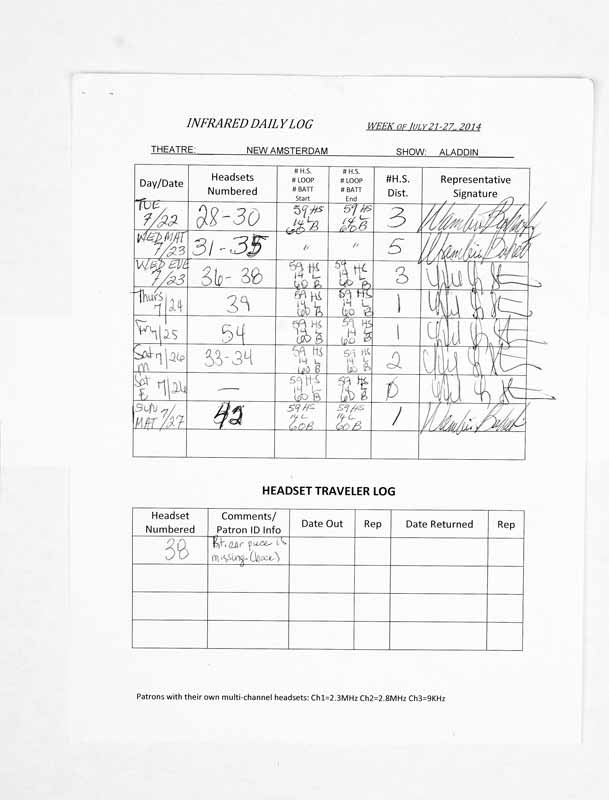 INFRARED DAILY LOG WEEK OF JULY 21-27, 2014
THEATRE: NEW AMSTERDAM SHOW: ALADDIN
Day/Date Headsets Numbered # H.S. # LOOP # BATT Start # H.S. # LOOP # BATT End #H.S. Dist. Representative Signature
TUE 7/22 28-30 59 HS 14 L 60 B 59 HS 14 L 60 B 3
WED MAT 7/23 31-35 " " 5
WED EVE 7/23 36-38 59 HS 14 L 60 B 59 HS 14 L 60 B 3
Thurs 7/24 39 59 HS 14 L 60 B 59 HS 14 L 60 B 1
Fry 7/25 54 59 HS 14 L 60 B 59 HS 14 L 60 B 1
Sat 7/26 M 33-34 59 HS 14 L 60 B 59 HS 14 L 60 B 2
Sat 7/26 E — 59 HS 14 L 60 B 59 HS 14 L 60 B 0
SUN MAT 7/27 42 59 HS 14 L 60 B 59 HS 14 L 60 B 1
HEADSET TRAVELER LOG
Headset Numbered Comments/ Patron ID Info Date Out Rep Date Returned Rep
38 Rt. ear piece is missing
Patrons with their own multi-channel headsets: Ch1=2.3MHz Ch2=2.8MHz Ch3=9KHz